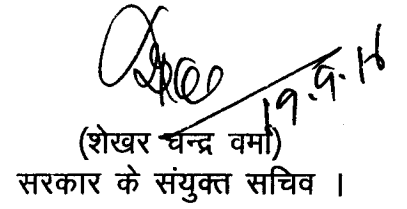 19.9.16
(शेखर चन्द्र वर्मा)
सरकार के संयुक्त सचिव ।